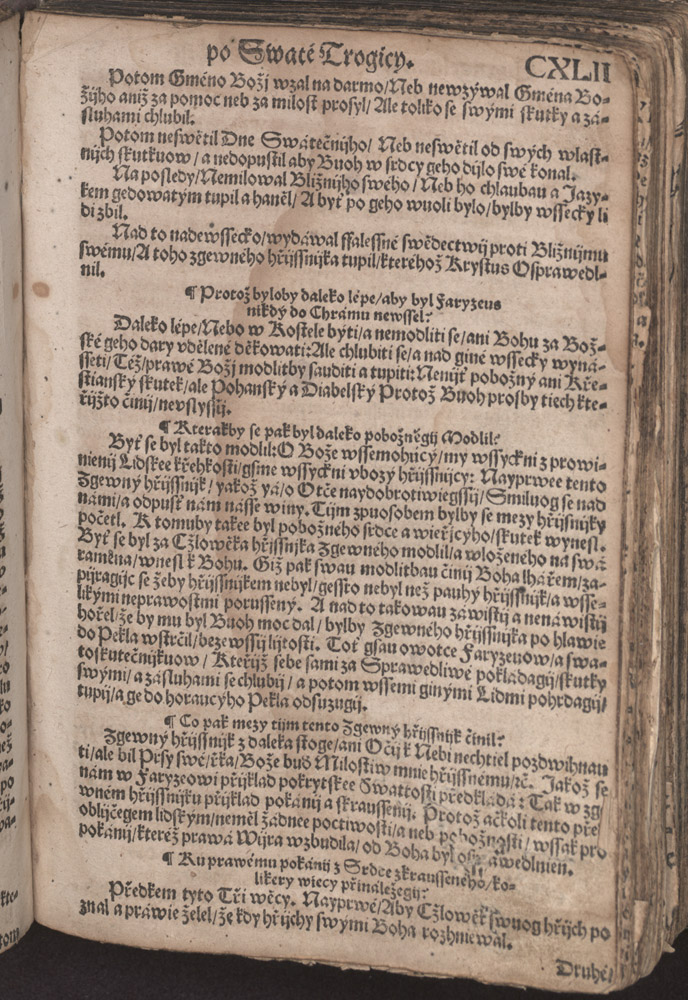 po Swaté Trogicy. CXLII
Potom Gméno Božj wzal na darmo/Neb newzýwal Gména Bo-
žijho aniž za pomoc neb za milost prosyl/Ale toliko se swými skutky a zá-
sluhami chlubil.
Potom neswětil Dne Swátečnijho/ Neb neswětil od swých wlast-
nijch skutkuow/a nedopustil aby Buoh w srdcy geho dijlo swé konal.
Na posledy/Nemilowal Bližnijho swého/Neb ho chlaubau a Jazy-
kem gedowatým tupil a haněl/A byť po geho wuoli bylo/bylby wssecky li
di zbil.
Nad to nadewssecko/wydáwal ffalessné swědectwij proti Bližnijmu
swému/A toho zgewného hřijssnijka tupil/kteréhož Krystus Osprawedl-
nil.
¶ Protož byloby daleko lépe/aby byl Faryzeus
nikdý do Chrámu newssel?
Daleko lépe/Nebo w Kostele býti/a nemodliti se/ani Bohu za Bož-
ské geho dary vdělené děkowati: Ale chlubiti se/a nad giné wssecky wyná-
sseti/Též/prawé Božj modlitby sauditi a tupiti: Nenijť pobožný ani Kře-
stianský skutek/ale Pohanský a Diabelský Protož Buoh prosby tiech kte-
řijžto činij/nevslyssij.
¶ Kterakby se pak byl daleko pobožněgij Modlil?
Byť se byl takto modlil: O Bože wssemohúcý/my wssyckni z prowi-
nienij Lidskee křehkosti/gsme wssyckni vbozý hřijssnijcy: Nayprwee tento
Zgewný hřijssnijk/yakož yá/o Otče naydobrotiwiegssij/Smilug se nad
námi/a odpusť nám násse winy. Tijm zpuosobem bylby se mezy hřijssnijky
početl. K tomuby takee byl pobožného srdce a wieřijcyho/skutek wynesl.
Byť se byl za Cžlowěka hřijssnijka zgewného modlil/a wloženého na swá
raměna/wnesl k Bohu. Giž pak swau modlitbau činij Boha lhářem/za-
pijragijc se žeby hřijssnijkem nebyl/gessto nebyl než pauhý hřijssnijk/a wsse-
likými neprawostmi porussený. A nad to takowau záwistij a nenáwistij
hořel/že by mu byl Buoh moc dal/bylby Zgewného hřijssnijka po hlawie
do Pekla wstrčil/beze wssij lijtosti. Toť gsau owotce Faryzeuow/a swa-
toskutečnijkuow/Kteřijž sebe sami za Sprawedliwé pokládagij/skutky
swými/a zásluhami se chlubij/a potom wssemi ginými Lidmi pohrdagij/
tupij/a ge do horaucýho Pekla odsuzugij.
¶ Co pak mezy tijm tento Zgewný hřijssnijk činil?
Zgewný hřijssnijk z daleka stoge/ani Očij k Nebi nechtiel pozdwihnau
ti/ale bil Prsy swé/řka/Bože buď Milostiw mnie hřijssnému/ꝛč. Jakož se
nám w Faryzeowi přijklad pokrytskee Swattosti předkládá: Tak w zg
wném hřijssnijku přijklad pokánij a skraussenij. Protož ačkoli tento pře
oblijčegem lidským/neměl žádnee poctiwosti/a neb pobožnosti/wssak pro
pokánij/kteréž prawá Wijra wzbudila/od Boha byl osprawedlnien.
¶ Ku prawému pokánij z Srdce zkrausseného/ko-
likery wiecy přináležegij?
Předkem tyto Tři wěcy. Nayprwé/Aby Cžlowěk swuog hřijch po
znal a práwie želel/že kdy hřijchy swými Boha rozhniewal.
Druhé/